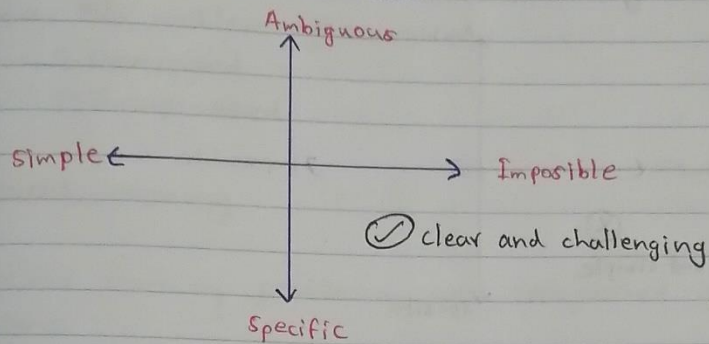 Ambiguous
simple
Imposible
clear and challenging
Specific